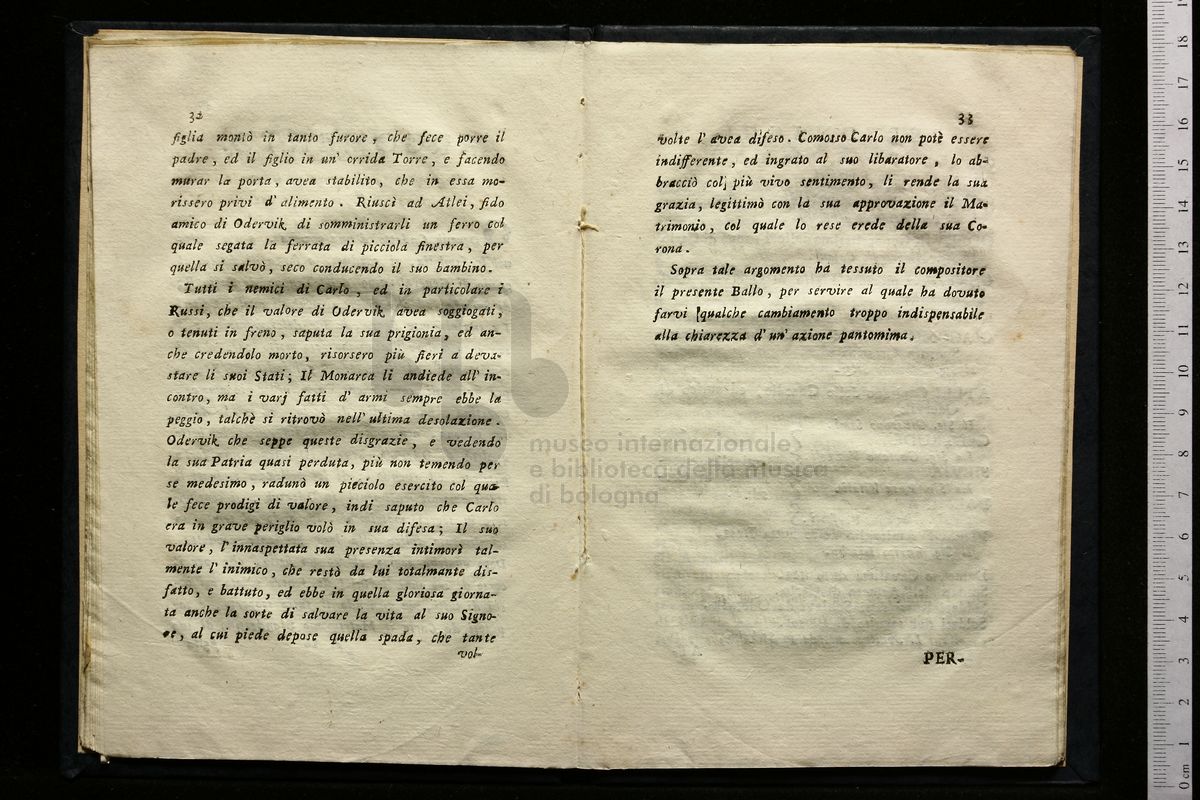 32
figlia montò in tanto furore, che fece porre il
padre, ed il figlio in un' orrida Torre, e facendo
murar la porta, avea stabilito, che in essa mo-
rissero privi d' alimento. Riuscì ad Atlei, fido
amico di Odervik di somministrarli un ferro col
quale segata la ferrata di picciola finestra, per
quella si salvò, seco conducendo il suo bambino.
Tutti i nemici di Carlo, ed in particolare i
Russi, che il valore di Odervik avea soggiogati,
o tenuti in freno, saputa la sua prigionia, ed an-
che credendolo morto, risorsero più fieri a deva-
stare li suoi Stati; Il Monarca li andiede all' in-
contro, ma i varj fatti d' armi sempre ebbe la
peggio, talchè si ritrovò nell' ultima desolazione.
Odervik che seppe queste disgrazie, e vedendo
la sua Patria quasi perduta, più non temendo per
se medesimo, radunò un picciolo esercito col qua-
le fece prodigi di valore, indi saputo che Carlo
era in grave periglio volò in sua difesa; Il suo
valore, l' innaspettata sua presenza intimorì tal-
mente l' inimico, che restò da lui totalmante dis-
fatto, e battuto, ed ebbe in quella gloriosa giorna-
ta anche la sorte di salvare la vita al suo Signo-
re, al cui piede depose quella spada, che tante
vol-
33
volte l' avea difeso. Comosso Carlo non potè essere
indifferente, ed ingrato al suo libaratore, lo ab-
bracciò col più vivo sentimento, li rende la sua
grazia, legittimò con la sua approvazione il Ma-
trimonio, col quale lo rese erede della sua Co-
rona.
Sopra tale argomento ha tessuto il compositore
il presente Ballo, per servire al quale ha dovuto
farvi qualche cambiamento troppo indispensabile
alla chiarezza d' un' azione pantomima.
PER-
museo internazionale
e biblioteca della musica
di bologna
0 cm 1 2 3 4 5 6 7 8 9 10 11 12 13 14 15 16 17 18 19